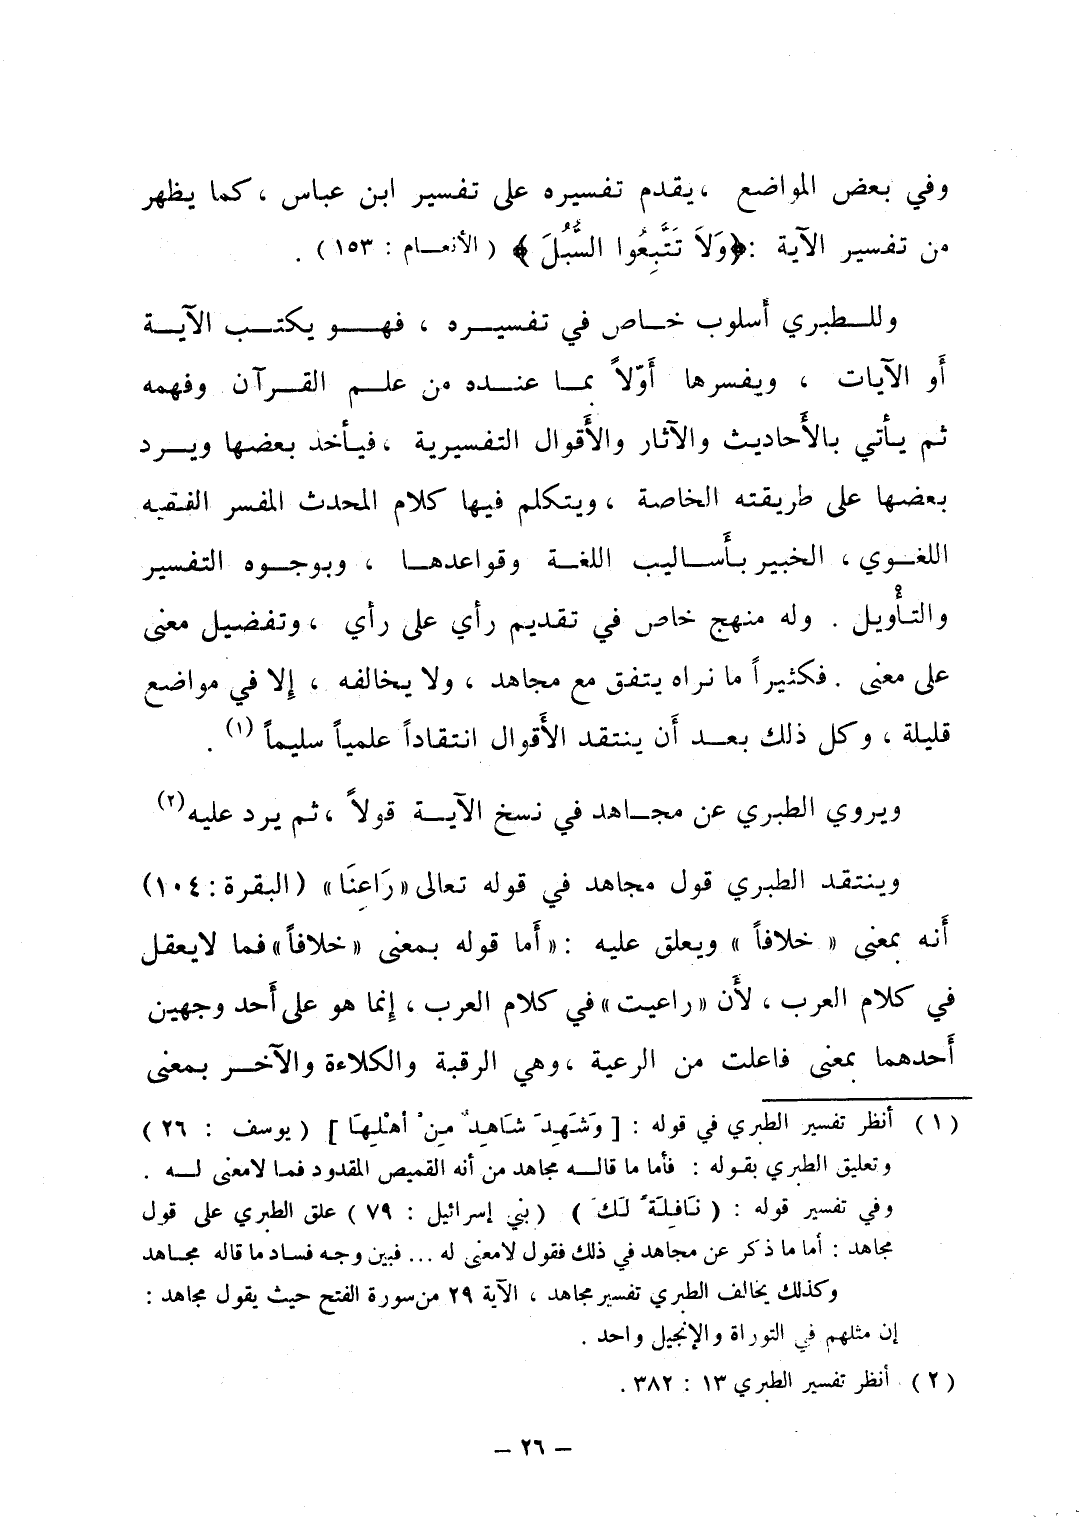 وفي بعض المواضع ، يقدم تفسيره على تفسير ابن عباس ، كما يظهر
من تفسير الآية : ﴿وَلاَ تَتَّبِعُوا السُّبُلَ﴾ ( الأنعـام : ١٥٣ ) .
وللـطبري أسلوب خـاص في تفسيـره ، فهـو يكتـب الآيـة
أو الآيات ، ويفسرها أوّلاً بمـا عنـده من علـم القـرآن وفهمه
ثم يـأتي بالأحاديث والآثار والأقوال التفسيرية ، فيأخذ بعضها ويـرد
بعضها على طريقته الخاصة ، ويتكلم فيها كلام المحدث المفسر الفقيه
اللغـوي ، الخبير بأسـاليب اللغـة وقواعدهـا ، وبوجـوه التفسير
والتأويل . وله منهج خاص في تقديم رأي على رأي ، وتفضيل معنى
على معنى . فكثيراً ما نراه يتفق مع مجاهد ، ولا يخالفه ، إلا في مواضع
قليلة ، وكل ذلك بعـد أن ينتقد الأقوال انتقاداً علمياً سليماً (١) .
ويروي الطبري عن مجـاهد في نسخ الآيـة قولاً ، ثم يرد عليه (٢)
وينتقد الطبري قول مجاهد في قوله تعالى « رَاعِنَا » (البقرة : ١٠٤)
أنه بمعنى « خلافاً » ويعلق عليه : « أما قوله بمعنى « خلافاً » فما لايعقل
في كلام العرب ، لأن « راعيت » في كلام العرب ، إنما هو على أحد وجهين
أحدهما بمعنى فاعلت من الرعية ، وهي الرقبة والكلاءة والآخـر بمعنى
( ١ ) أنظر تفسير الطبري في قوله : [ وَشَهِدَ شَاهِدٌ مِنْ أهْلِهَا ] ( يوسف : ٢٦ )
وتعليق الطبري بقـوله : فأما ما قالـه مجاهد من أنه القميص المقدود فمـا لامعنى لـه .
وفي تفسير قوله : ( نَافِلَةً لَكَ ) ( بني إسرائيل : ٧٩ ) علق الطبري على قول
مجاهد : أما ما ذكر عن مجاهد في ذلك فقول لامعنى له ... فبين وجـه فساد ما قاله مجـاهد
وكذلك يخالف الطبري تفسير مجاهد ، الآية ٢٩ من سورة الفتح حيث يقول مجاهد :
إن مثلهم في التوراة والإنجيل واحد .
( ٢ ) أنظر تفسير الطبري ١٣ : ٣٨٢ .
– ٢٦ –